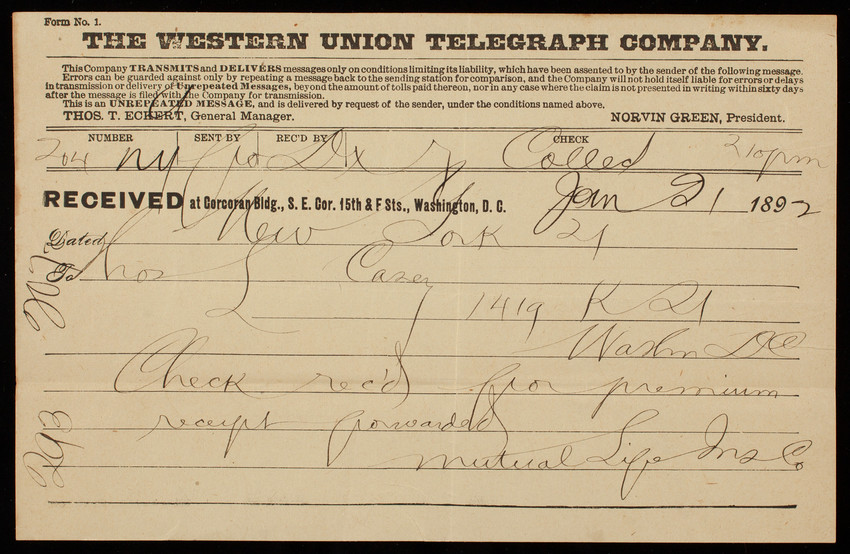 Form No. 1.
THE WESTERN UNION TELEGRAPH COMPANY.
This Company TRANSMITS and DELIVERS messages only on conditions limiting its liability, which have been assented to by the sender of the following message.
Errors can be guarded against only by repeating a message back to the sending station for comparison, and the Company will not hold itself liable for errors or delays
in transmission or delivery of Unrepeated Messages, beyond the amount of tolls paid thereon, nor in any case where the claim is not presented in writing within sixty days
after the message is filed with the Company for transmission.
This is an UNREPEATED MESSAGE, and is delivered by request of the sender, under the conditions named above.
THOS. T. ECKERT, General Manager. NORVIN GREEN, President.
NUMBER SENT BY REC'D BY CHECK
204 ny Dx 7 Collect 210pm
RECEIVED at Corcoran Bldg., S. E. Cor. 15th & F Sts., Washington, D. C. Jan 21 1892
Dated New York 21
To Thos L Casey
1419 K St
Washn DC
Check rec'd for premium
receipt forwarded
Mutual Life Ins Co